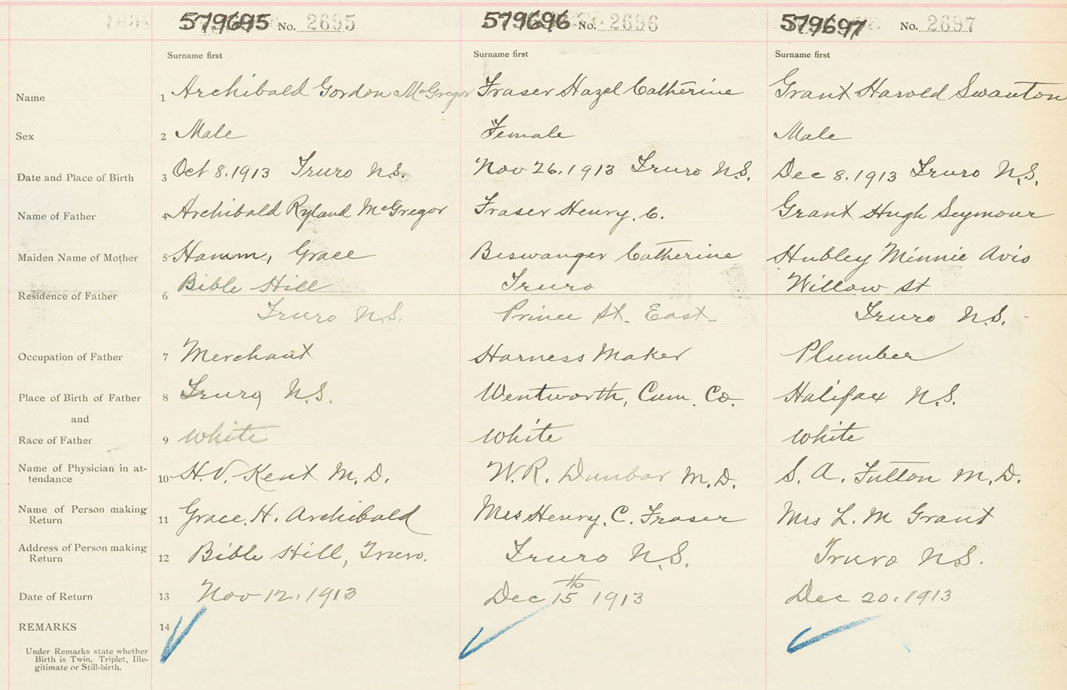 579695 No. 2695 579696 No. 2696 579697 No. 2697
Surname first Surname first Surname first
Name 1 Archibald Gordon McGregor Fraser Hazel Catherine Grant Harold Swanton
Sex 2 Male Female Male
Date and Place of Birth 3 Oct 8. 1913 Truro N.S. Nov 26. 1913 Truro N.S. Dec 8. 1913 Truro N.S.
Name of Father 4 Archibald Ryland McGregor Fraser Henry. C. Grant Hugh Seymour
Maiden Name of Mother 5 Hamm, Grace Beswanger Catherine Hubley Minnie Avis
Residence of Father 6 Bible Hill Truro Willow St
Truro N.S. Prince St. East Truro N.S.
Occupation of Father 7 Merchant Harness Maker Plumber
Place of Birth of Father 8 Truro N.S. Wentworth, Cum. Co. Halifax N.S.
and
Race of Father 9 White White White
Name of Physician in at-
tendance 10 H.V. Kent M.D. W.R. Dunbar M.D. S. A. Fulton M.D.
Name of Person making
Return 11 Grace. H. Archibald Mrs Henry. C. Fraser Mrs L. M Grant
Address of Person making
Return 12 Bible Hill, Truro. Truro N.S. Truro N.S.
Date of Return 13 Nov 12. 1913 Dec 15th 1913 Dec 20. 1913
REMARKS 14
Under Remarks state whether
Birth is Twin, Triplet, Ille-
gitimate or Still-birth.